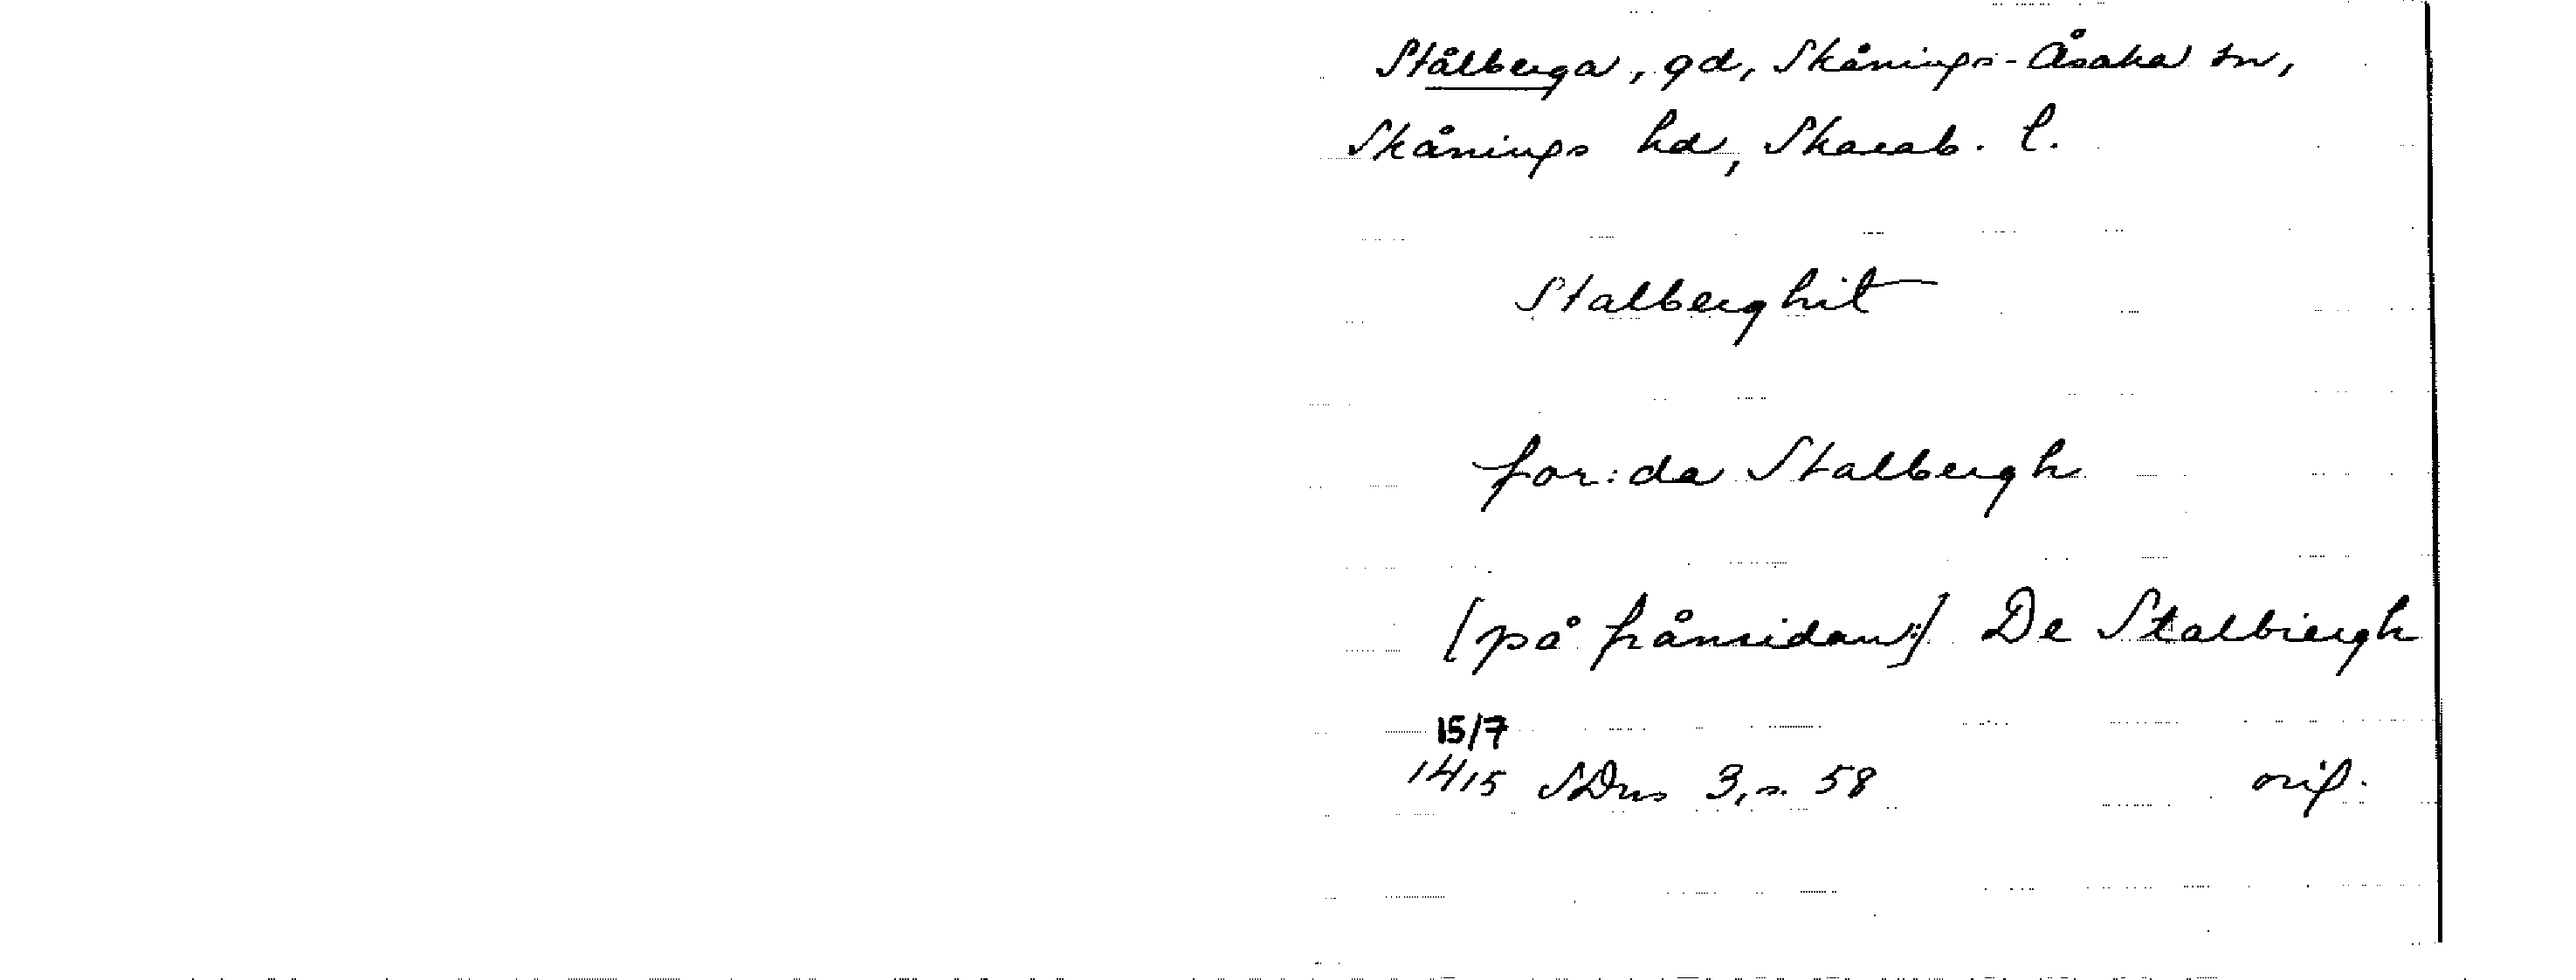 Stålberga, gd, Skånings-Åsaka sn,
Skånings hd, Skarab. l.
Stalberghit
for:da Stalbergh
[på frånsidan:] De Stalbiergh
15/7
1415 SDns 3, s. 58 orig.